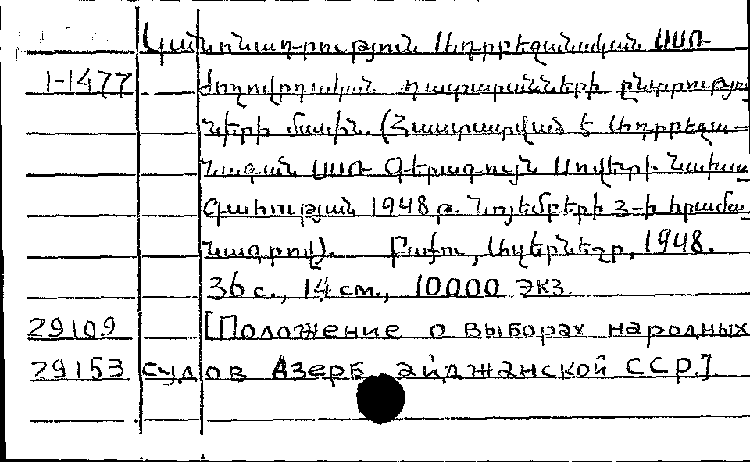 Կանոնադրություն Ադրբեջանական ՍՍՌ
1-1477 ժողովրդական դատարանների ընտրությու
ների մասին. (Հաստատված է Ադրբեջա-
նական ՍՍՌ Գերագույն Սովետի Նախա
գահության 1948 թ. նոյեմբերի 3-ի հրամա
նագրով). Բաքու, Ազերնեշր, 1948.
36 с., 14 см., 10000 экз.
29109 [Положение о выборах народных
29153 судов Азербайджанской ССР.]